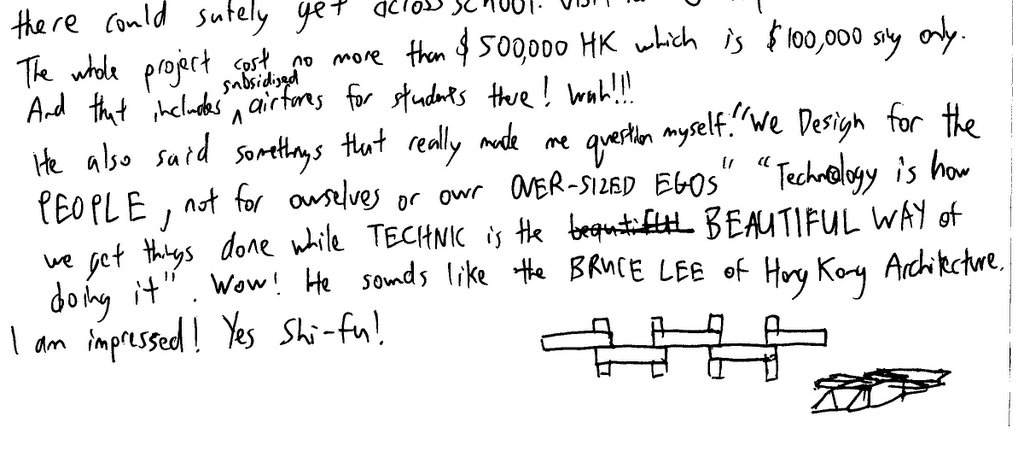 there could safely get across school. Visit
The whole project cost no more than $500,000 HK which is $100,000 sing only.
And that includes subsidised airfares for students there! Wah!!!
He also said somethings that really made me question myself. "We Design for the
PEOPLE, not for ourselves or our OVER-SIZED EGOS" "Technology is how
we get things done while TECHNIC is the beautiful BEAUTIFUL WAY of
doing it". Wow! He sounds like the BRUCE LEE of Hong Kong Architecture.
I am impressed! Yes Shi-fu!